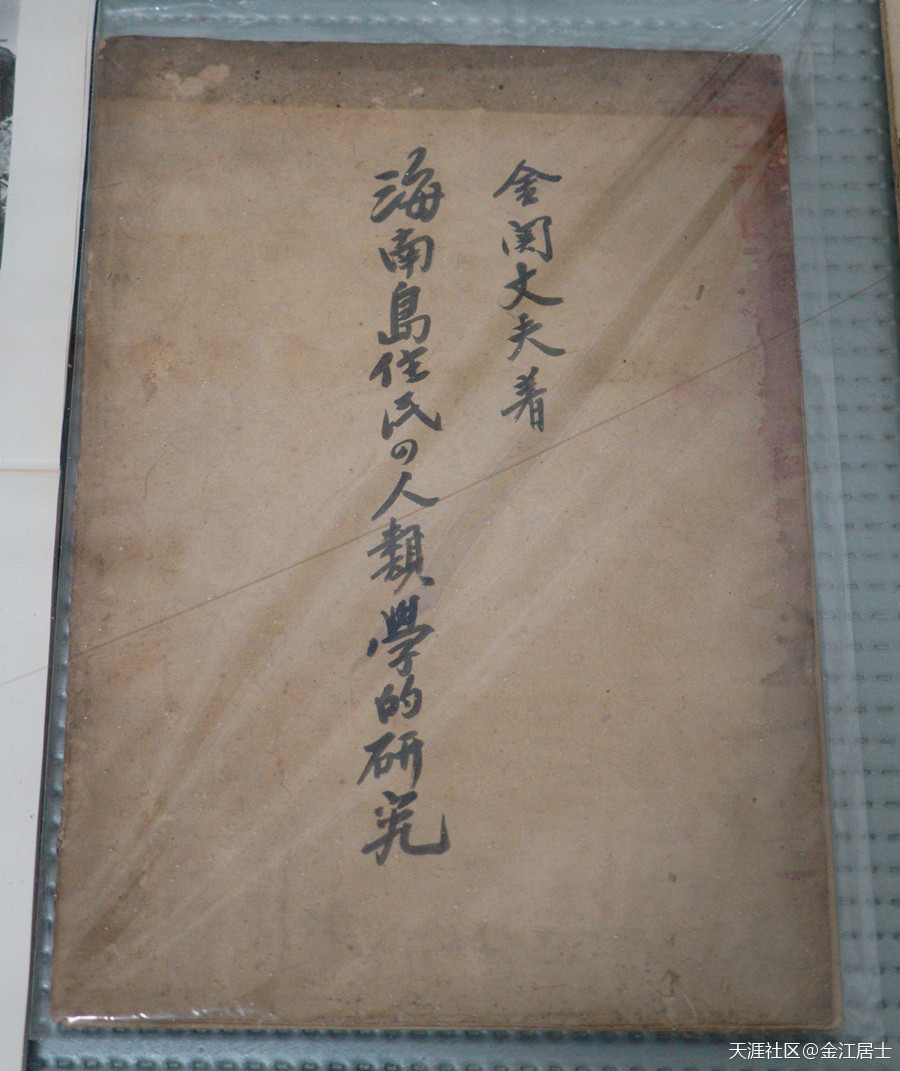 金関丈夫著
海南島住民の人類學的研究
天涯社区@金江居士